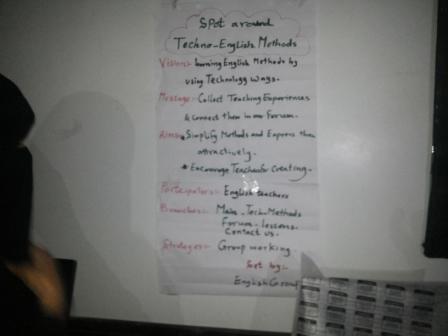 Spot around
Techno-English Methods
Vision:- learning English Methods by
using Technology ways.
Message:- Collect Teaching Experiences
& connect them in our Forum.
Aims:* Simplify Methods and Express them
attractively.
* Encourage Teacher for Creating.
Participators:- English teachers
Branches:- Main - Tech-Methods
Forum - lessons.
Contact us.
Group working
Set by:-
English Group